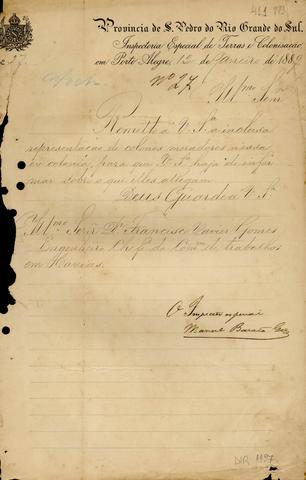 Provincia de S. Pedro do Rio Grande do Sul.
Inspectoria Especial de Terras e Colonisação
em Porto Alegre, 12 de Janeiro de 1889
Nº 27
Illmo Senr
Remetto a V. Sª a inclusa
representação de colonos moradores nessa
ex colonia, para que V. Sª haja de infor
mar sobre o que elles allegam.
Deus Guarde a V. Sª
Illmo Senr Dr Francisco Xavier Gomes
Engenheiro Chefe da Comm de trabalhos
em Caxias.
O Inspector especial
Manoel Barata
DIR 1127